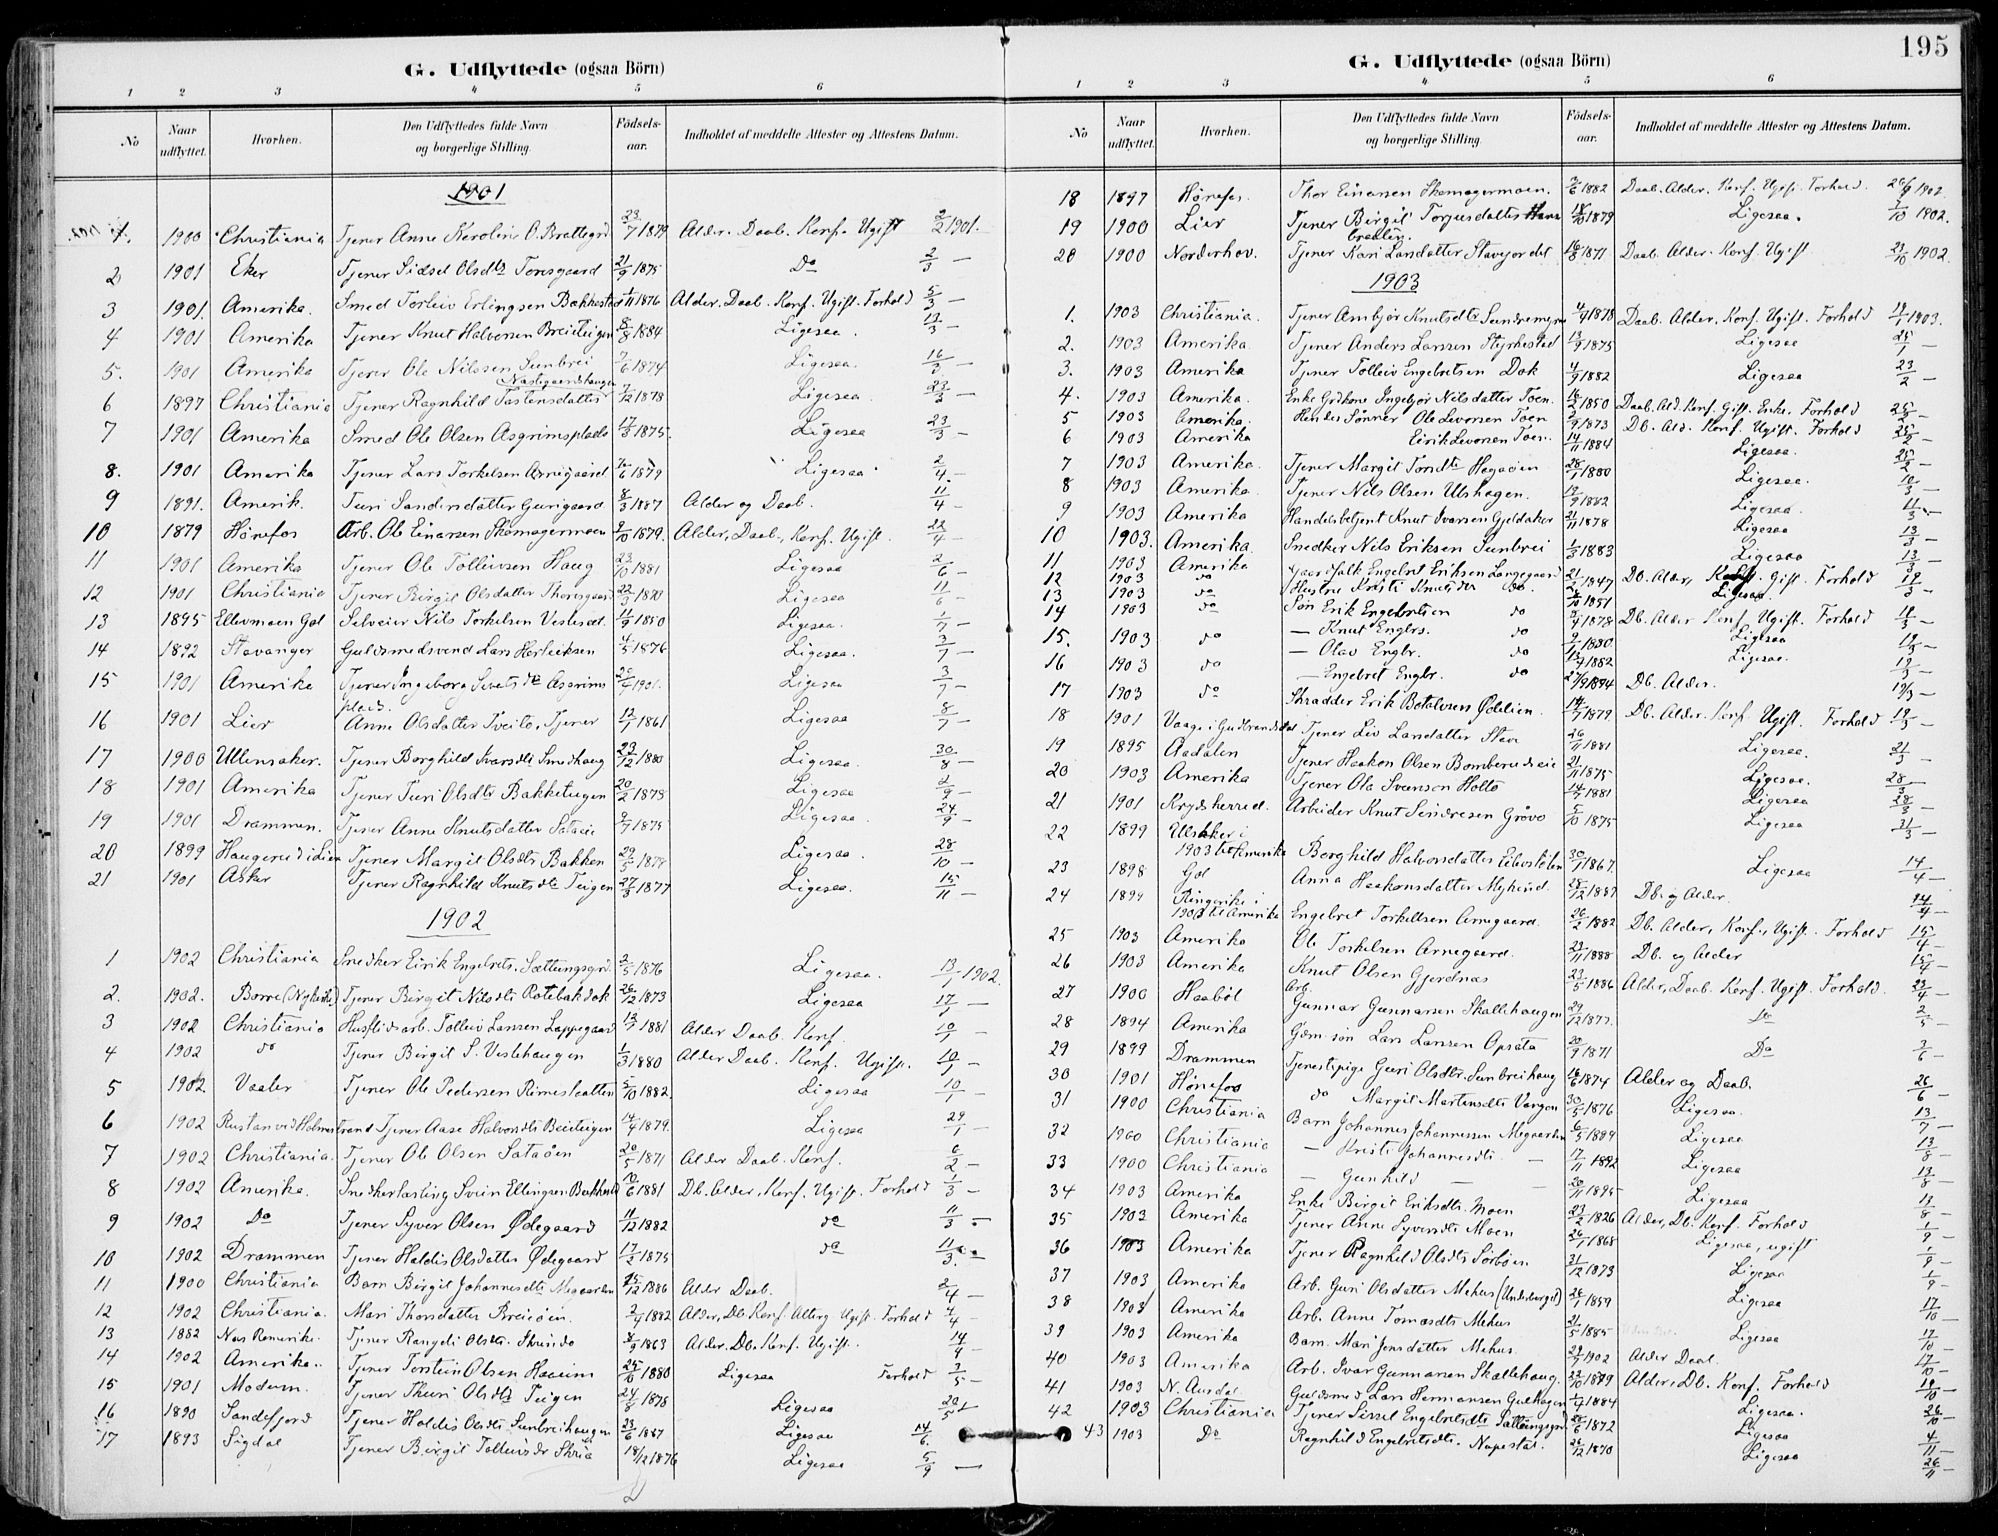 195
G. Udflyttede (ogsaa Börn)
1 2 3 4 5 6
No Naar udflyttet. Hvorhen. Den Udflyttedes fulde Navn og borgerlige Stilling. Födsels-aar. Indholdet af meddelte Attester og Attestens Datum.
1901
1. 1900 Christiania Tjener Anne Karoline O. Brattegrd 23/7 1879 Alder. Daab. Konf. Ugift 2/2 1901.
2 1901 Eker Tjener Sidsel Olsdtr Toresgaard 21/9 1875 Do 2/3 —
3 1901. Amerika. Smed Torleiv Erlingsen Bakkestad 1/11 1876 Alder. Daab. Konf. Ugift. Forhold 5/3 —
4 1901 Amerika Tjener Knut Halvorsen Breiteigen 8/8 1884 Ligesaa. 12/3 —
5. 1901 Amerika Tjener Ole Nilssen Sunbrei 7/6 1874 Ligesaa. 16/3 —
6 1897 Christiania Tjener Ragnhild Tostensdatter Nestegaardshaugen 7/12 1878 Ligesaa. 23/3 —
7 1901 Amerika Smed Ole Olsen Asgrimsplads 17/3 1875. Ligesaa 23/3 —
8. 1901 Amerika Tjener Lars Torkelsen Arnegaard 7/6 1879 Ligesaa 2/4 —
9 1891. Amerik. Turi Sandersdatter Gurigaard 8/3 1887 Alder og Daab. 11/4 —
10 1879 Hønefos Arb. Ole Einarsen Skomagermoen 2/10 1879. Alder, Daab, Konf. Ugift. 22/4 —
11 1901 Amerika Tjener Ole Tolleivsen Haug 23/10 1881 Ligesaa 2/6 —
12 1901 Christiania Tjener Birgit Olsdatter Thoresgaard 22/3 1880 Ligesaa 11/6 —
13 1895 Ellevmoen Gol Selveier Nils Torkelsen Veslesæt. 11/9 1850 Ligesaa. 1/7 —
14 1892 Stavanger Guldsmedsvend Lars Herleiksen 4/5 1876 Ligesaa. 3/7 —
15 1901 Amerika Tjener Ingeborg Sivertsdtr Asgrims
plads. 1901. Ligesaa 3/7 —
16 1901 Lier Anne Olsdatter Tveito, Tjener 12/7 1861 Ligesaa 8/7 —
17 1900 Ullensaker. Tjener Borghild Ivarsdtr Smedhaug 23/12 1880 Ligesaa. 30/8 —
18 1901 Amerika Tjener Turi Olsdtr Bakketeigen 20/2 1878 Ligesaa 2/9 —
19 1901 Drammen. Tjener Anne Knutsdatter Sataöie 2/7 1875 Ligesaa. 24/9 —
20 1899 Haugerud i Lier Tjener Margit Olsdtr Bakken 29/5 1878 Ligesaa. 28/10 —
21 1901 Asker Tjener Ragnhild Knutsdtr Teigen 27/3 1877 Ligesaa. 15/11 —
1902
1 1902 Christiania Snedker Eirik Engebrets. Sattungsgrd 2/5 1876 Ligesaa. 13/1 1902.
2. 1902. Borre (Nykirke) Tjener Birgit Nilsdtr Rotebakdok 26/12 1873 Ligesaa 17/1 —
3 1902 Christiania Husflidsarb. Tolleiv Larsen Loppegaard 13/7 1881 Alder Daab. Konf. 10/1 —
4 1902 do Tjener Birgit S. Veslehaugen 1/3 1880 Alder Daab. Konf. Ugift. 10/1 —
5 1902 Vaaler Tjener Ole Pedersen Rimesleatten 5/10 1882. Ligesaa 10/1 —
6 1902 Rustan ved Holmestrand Tjener Aase Halvorsdtr Breiteigen 14/4 1879. Ligesaa 29/1 —
7 1902 Christiania. Tjener Ole Olsen Sataöen 20/5 1871 Alder Daab. Konf. 6/2 —
8 1902 Amerika. Snedkerlærling Svein Ellingsen Bakkestad 10/6 1881 Db. Alder, Konf. Ugift. Forhold 1/3 —
9 1902 Do Tjener Syver Olsen Ødegaard 11/12 1882 do 11/3 —
10 1902 Drammen Tjener Haldis Olsdatter Ødegaard 17/2 1875 do 11/3. —
11 1900 Christiania Barn Birgit Johannesdtr Megaarden 25/12 1886 Alder Daab. 2/4 —
12 1902 Christiania. Mari Thorsdatter Breieöin. 2/4 1882 Alder, Db Konf. Alterg Ugift. Forhold 4/4 —
13 1882 Nes Romerike. Tjener Rangdi Olsdtr. Skrindo 8/9 1863 Alder. Db. Konf. Ugift. 14/4 —
14 1902 Amerika. Tjener Torstein Olsen Haauim 25/6 1880 Ligesaa Forhold 3/5 —
15 1901 Modum. Tjener Thuri Olsdtr Teigen 24/8 1878 Ligesaa 20/5 —
16 1890 Sandefjord Tjener Haldis Olsdtr Sunbreihaugen 23/2 1867 Ligesaa 14/6. —
17 1893 Sigdal Tjener Birgit Tolleivsdr Skria 18/12 1876 Ligesaa 5/9 —
G. Udflyttede (ogsaa Börn)
1 2 3 4 5 6
No Naar udflyttet. Hvorhen. Den Udflyttedes fulde Navn og borgerlige Stilling. Födsels-aar. Indholdet af meddelte Attester og Attestens Datum.
18 1897 Hönefos. Thor Einarsen Skomagermoen. 7/6 1882 Daab. Alder. Konf. Ugift. Forhold. 20/9 1902.
19 1900 Lier Tjener Birgit Torjusdatter 18/10 1879 Ligesaa. 3/10 1902.
20 1900 Norderhov. Tjener Kari Larsdatter Stavejordet 16/8 1871 Daab. Alder. Konf. Ugift. 23/10 1902.
1903
1. 1903 Christiania. Tjener Ambjør Knutsdtr Sundremoen 4/4 1878 Daab. Alder, Konf. Ugift. Forhold 14/1 1903.
2. 1903 Amerika. Tjener Anders Larssen Styrkestad 13/9 1875 Ligesaa 25/1 —
3. 1903 Amerika Tjener Tolleiv Engebretsen Dok 4/9 1882 Ligesaa 23/2 —
4. 1903 Amerika. Enke Grdkone Ingebjør Nilsdatter Toen. 16/2 1850 Daab. Ald. Konf. Gift. Enke. Forhold 25/2 —
5 1903 Amerika. Hendes Sønner Ole Levorsen Toen 3/9 1873 Db. Ald. Konf. Ugift. Forhold 25/2 —
6 1903 Amerika Eirik Levorsen Toen. 14/11 1884 Ligesaa. 25/2 —
7 1903 Amerika. Tjener Margit Torsdtr Hagaöen 28/1 1880 Ligesaa. 10/3 —
8 1903 Amerika. Tjener Nils Olsen Ulshagen. 19/9 1882 Ligesaa. 11/3 —
9 1903 Amerika Handelsbetjent Knut Ivarsen Gjeldaker 21/11 1878 Ligesaa 13/3 —
10 1903. Amerika. Snedker Nils Eriksen Sunbrei 1/3 1883 Ligesaa 13/3 —
11 1903 Amerika Gaardfolk Engebret Eriksen Langegaard 21/2 1847 Db. Alder, Konf. Gift. Forhold 19/3 —
12 1903 do Hustru Kristi Knutsdtr do. 1851 Ligesaa
13 1903 do Søn Erik Engebretsen do 5/4 1878 Db. Alder Konf. Ugift. Forhold 18/3 —
14 1903 do — Knut Engbrs. do 1880. Ligesaa 19/3 —
15. 1903 do — Olav Engbr. do 13/9 1882 Ligesaa. 19/3 —
16 1903 do — Engebret Engbr. do 27/9 1894 Db. Alder. 19/3 —
17 1903 do Skrædder Erik Botolvsen Ødelien. 14/7 1879 Db. Alder. Konf. Ugift. Forhold 19/3 —
18 1901 Vaage i Gudbrandsdal Tjener Liv Larsdatter Stave 26/11 1881 Ligesaa. 21/3 —
19 1895 Aadalen Tjener Haakon Olsen Bomberudeie 21/11 1875 Ligesaa. 28/3 —
20 1903 Amerika Tjener Ola Svensen Holto 14/7 1881 Ligesaa 28/3 —
21 1901 Krydsherred. Arbeider Knut Sindresen Grövo 5/10 1875 Ligesaa 31/3 —
22 1899 Ulsaker i
1903 til Amerika Borghild Halvorsdatter Eikestølen 30/1 1867. Ligesaa 14/4 —
23 1898 Gol Anna Haakonsdatter Myhind. 28/12 1887 Db. og Alder. 14/4 —
24 1899 Ringerike i
1903 til Amerika Engebret Torkelsen Arnegaard. 26/2 1882 Db. Alder, Konf., Ugift. Forhold 15/4 —
25 1903 Amerika Ole Torkelsen Arnegaard. 23/11 1888 Db. og Alder 15/4 —
26 1903 Amerika Knut Olsen Gjerdnas 23/5 1886 Alder, Daab. Konf. Ugift. Forhold. 23/4 —
27 1900 Haaböl Arb. Gunnar Gunnarsen Skallehaugen 29/12 1877. Do 2/5 —
28 1894 Amerika Grdm.søn Lars Larssen Opsata 20/9 1871 Do 3/6 —
29 1899 Drammen Tjenestepige Guri Olsdtr. Sunbreihaug 16/6 1874 Alder og Daab. 26/6 —
30 1901 Hønefos do Margit Martinsdtr Vangen 30/5 1876 Ligesaa. 13/7 —
31 1900 Christiania Barn Johannes Johannessen Megaarden 6/5 1889 Ligesaa 13/8 —
32 1900 Christiania — Kristi Johannesdtr. — 17/11 1892 Ligesaa 13/8 —
33 1900 Christiania — Gunhild — — 20/11 1895 Ligesaa 13/8 —
34 1903 Amerika Enke Birgit Eriksdtr. Moen 23/2 1826 Alder, Db. Konf. Forhold 1/9 —
35 1903 Amerika Tjener Anne Syversdtr Moen 26/1 1868 Ligesaa, ugift 1/9 —
36 1903 Amerika Tjener Ragnhild Olsdtr Sorböen 31/12 1873 Ligesaa 1/9 —
37 1903 Amerika. Arb. Guri Olsdatter Mehus (Underberget) 26/1 1859 Ligesaa 17/10 —
38 1903 Amerika Arb. Anne Tomasdtr Mehus 21/5 1885 Ligesaa 17/10 —
39 1903 Amerika Barn. Mari Jensdatter Mehus. 29/7 1902 Alder Daab. 17/10 —
40 1903 Amerika Arb. Ivar Gunnarsen Skallehaug. 22/10 1879 Alder, Db. Konf. Forhold 19/10 —
41 1903 N. Aurdal Guldsmed Lars Hermansen Gulhagen 1/4 1884 Ligesaa. 26/10 —
42 1903 Christiania Tjener Sissel Engebretsdtr Sattungsgrd 28/6 1872 Ligesaa 4/11 —
43 1903 Do Ragnhild Engebretsdtr. Napestad. 26/12 1870 Ligesaa 26/11 —